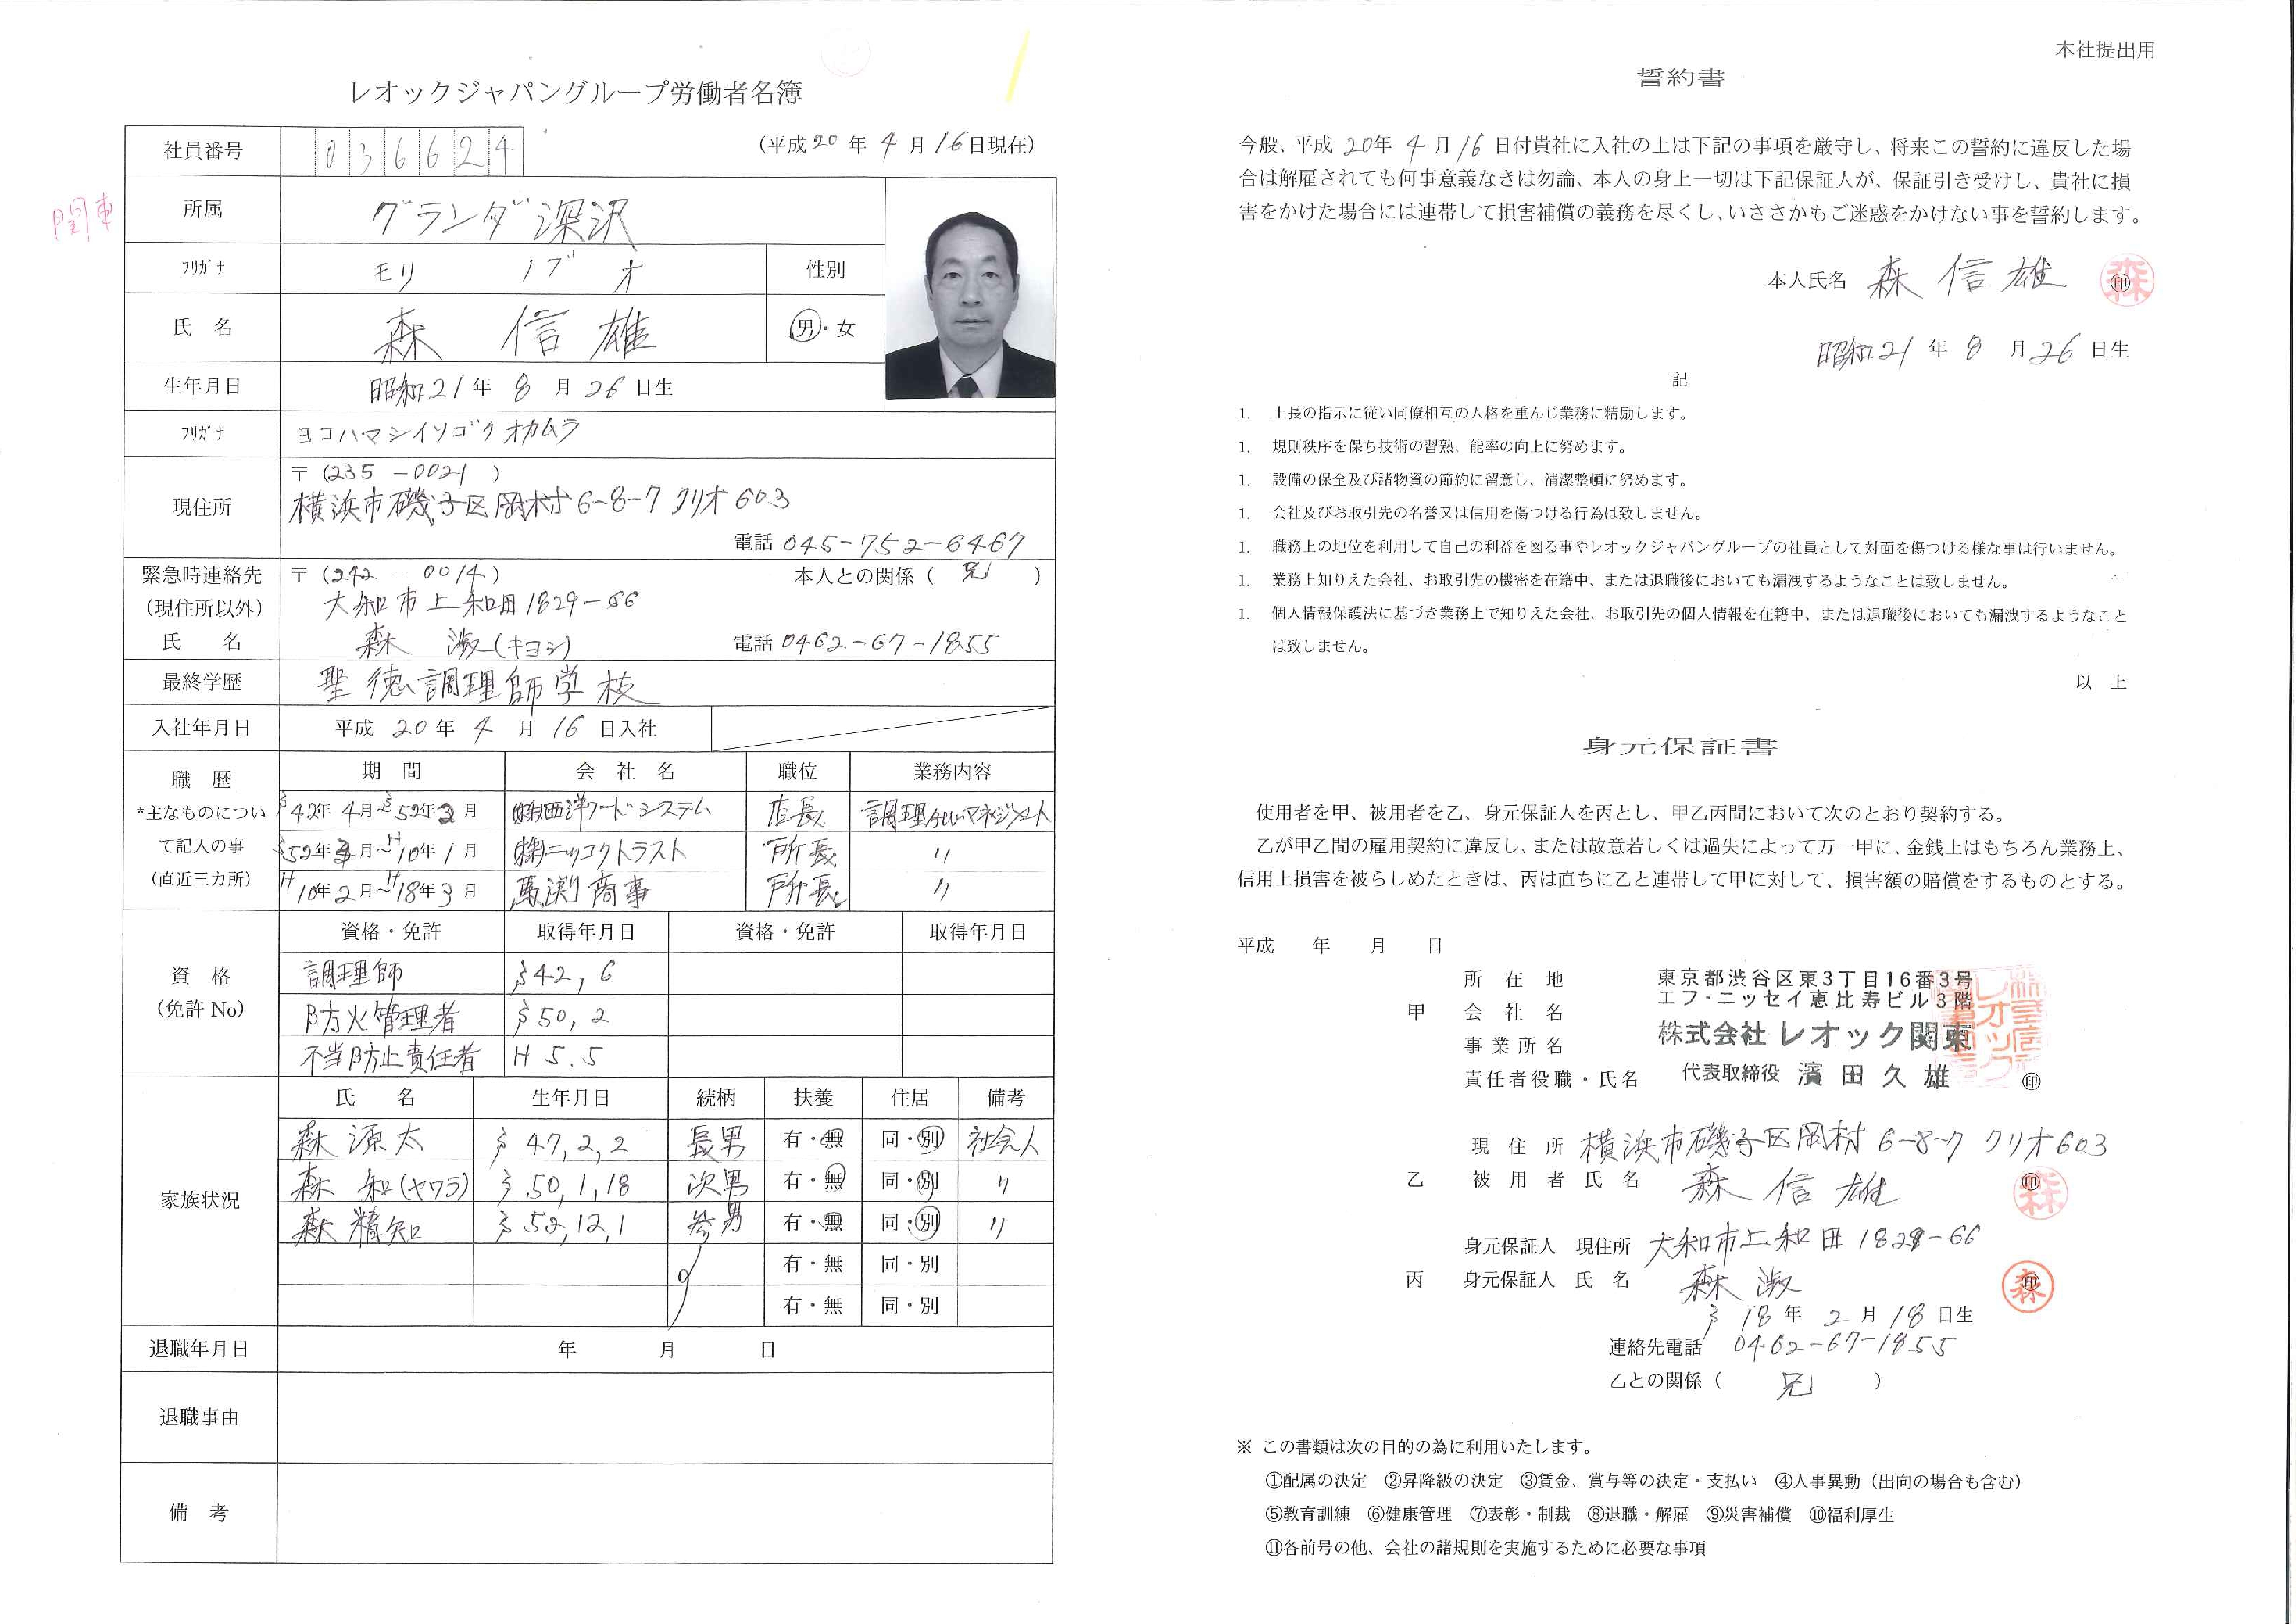 レオックジャパングループ労働者名簿
社員番号 036624 (平成20年4月16日現在)
関東
所属 グランダ深沢
フリガナ モリ ノブオ 性別
氏 名 森 信雄 男・女
生年月日 昭和21年8月26日生
フリガナ ヨコハマシイソゴクオカムラ
現住所 〒(235-0021)
横浜市磯子区岡村6-8-7 クリオ603
電話 045-752-6467
緊急時連絡先 〒(242-0014) 本人との関係(兄)
(現住所以外) 大和市上和田1829-66
氏 名 森 淑(キヨシ) 電話 0462-67-1855
最終学歴 聖徳調理師学校
入社年月日 平成20年4月16日入社
職 歴 期 間 会 社 名 職位 業務内容
*主なものについ S42年4月~S52年2月 (株)西洋フードシステム 店長 調理マネジメント
て記入の事 S52年3月~H10年1月 (株)ニッコクトラスト 所長 〃
(直近三カ所) H10年2月~H18年3月 馬渕商事 所長 〃
資格・免許 取得年月日 資格・免許 取得年月日
資 格 調理師 S42,6
(免許 No) 防火管理者 S50,2
不当防止責任者 H5.5
家族状況 氏 名 生年月日 続柄 扶養 住居 備考
森 源太 S47,2,2 長男 有・無 同・別 社会人
森 和(ヤワラ) S50,1,18 次男 有・無 同・別 〃
森 精知 S52,12,1 参男 有・無 同・別 〃
有・無 同・別
有・無 同・別
退職年月日 年 月 日
退職事由
備 考
本社提出用
誓約書
今般、平成20年4月16日付貴社に入社の上は下記の事項を厳守し、将来この誓約に違反した場
合は解雇されても何事意義なきは勿論、本人の身上一切は下記保証人が、保証引き受けし、貴社に損
害をかけた場合には連帯して損害補償の義務を尽くし、いささかもご迷惑をかけない事を誓約します。
本人氏名 森 信雄 印 森
昭和21年8月26日生
記
1. 上長の指示に従い同僚相互の人格を重んじ業務に精励します。
1. 規則秩序を保ち技術の習熟、能率の向上に努めます。
1. 設備の保全及び諸物資の節約に留意し、清潔整頓に努めます。
1. 会社及びお取引先の名誉又は信用を傷つける行為は致しません。
1. 職務上の地位を利用して自己の利益を図る事やレオックジャパングループの社員として対面を傷つける様な事は行いません。
1. 業務上知りえた会社、お取引先の機密を在籍中、または退職後においても漏洩するようなことは致しません。
1. 個人情報保護法に基づき業務上で知りえた会社、お取引先の個人情報を在籍中、または退職後においても漏洩するようなこと
は致しません。
以 上
身元保証書
使用者を甲、被用者を乙、身元保証人を丙とし、甲乙丙間において次のとおり契約する。
乙が甲乙間の雇用契約に違反し、または故意若しくは過失によって万一甲に、金銭上はもちろん業務上、
信用上損害を被らしめたときは、丙は直ちに乙と連帯して甲に対して、損害額の賠償をするものとする。
平成 年 月 日
所 在 地 東京都渋谷区東3丁目16番3号
エフ・ニッセイ恵比寿ビル3階
甲 会 社 名 株式会社 レオック関東
事 業 所 名
責任者役職・氏名 代表取締役 濱田久雄 印
現 住 所 横浜市磯子区岡村 6-8-7 クリオ603
乙 被 用 者 氏 名 森 信雄 印 森
身元保証人 現住所 大和市上和田1829-66
丙 身元保証人 氏 名 森 淑 印 森
S18年2月18日生
連絡先電話 0462-67-1855
乙との関係(兄)
※ この書類は次の目的の為に利用いたします。
①配属の決定 ②昇降級の決定 ③賃金、賞与等の決定・支払い ④人事異動(出向の場合も含む)
⑤教育訓練 ⑥健康管理 ⑦表彰・制裁 ⑧退職・解雇 ⑨災害補償 ⑩福利厚生
⑪各前号の他、会社の諸規則を実施するために必要な事項